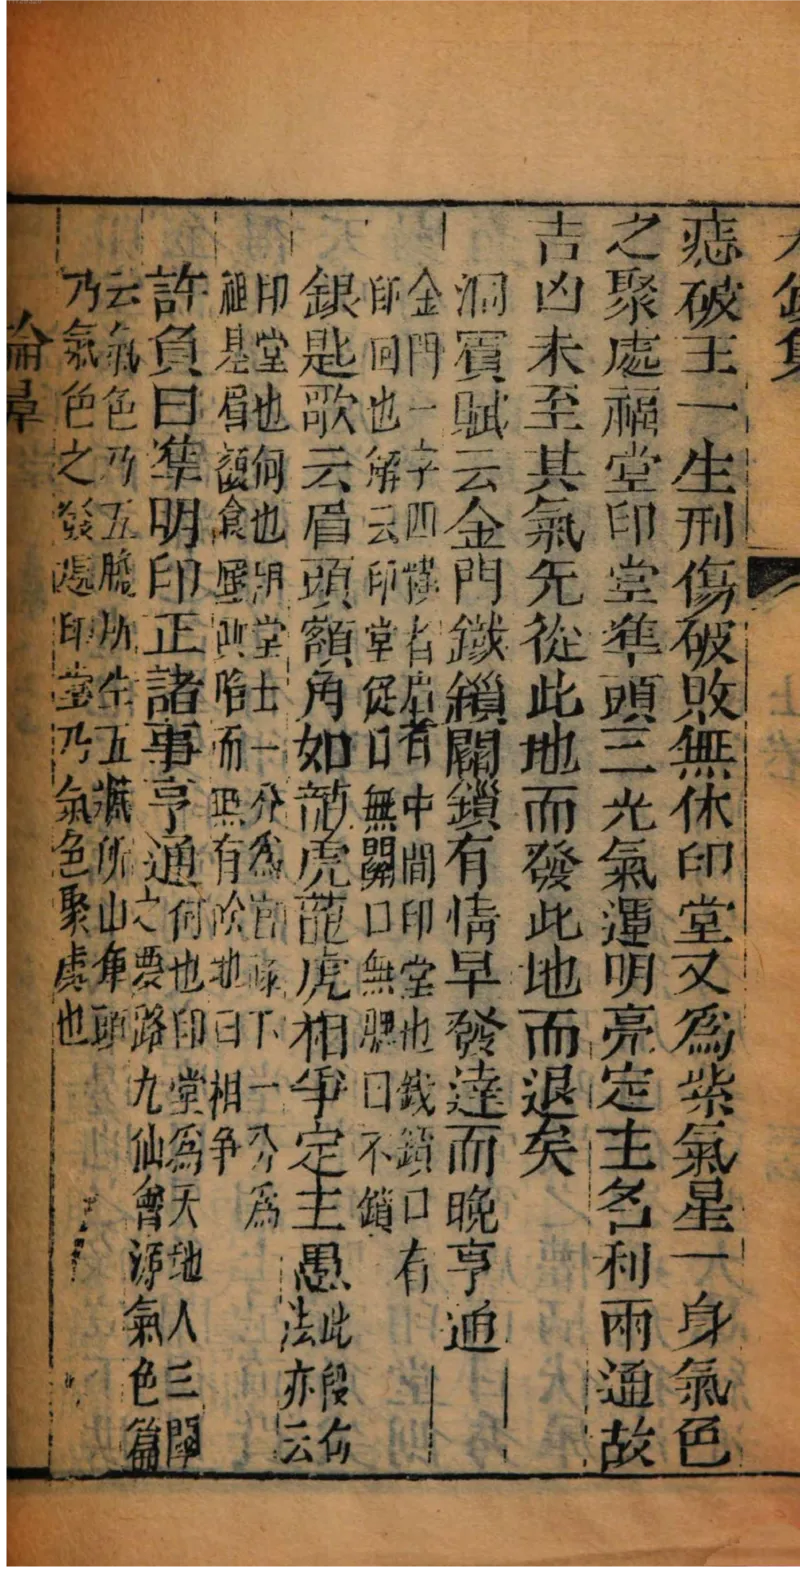 痣破王一生刑傷破敗無休印堂又爲紫氣星一身氣色
之聚處福堂印堂準頭三光氣運明亮定主名利兩通故
吉凶未至其氣先從此地而發此地而退矣
洞賓賦云金門鐵鎖關鎖有情早發達而晚亨通
金門一字四樣者眉者中間印堂也鐵鎖口有
師回也解云印堂從口無關口無腮口不鎖
銀匙歌云眉頭額角如龍虎龍虎相爭定主愚
此段
法亦云
印堂也何也明堂士一分為官祿下一分為
祖基眉額食壓 陷而 有 地曰相爭
許負曰準明印正諸事亨通
何也印堂為天地人三關
之要路九仙會源氣色篇
云氣色乃五膽所生五臟所 準頭
乃氣色之發處印堂乃氣色聚處也
論